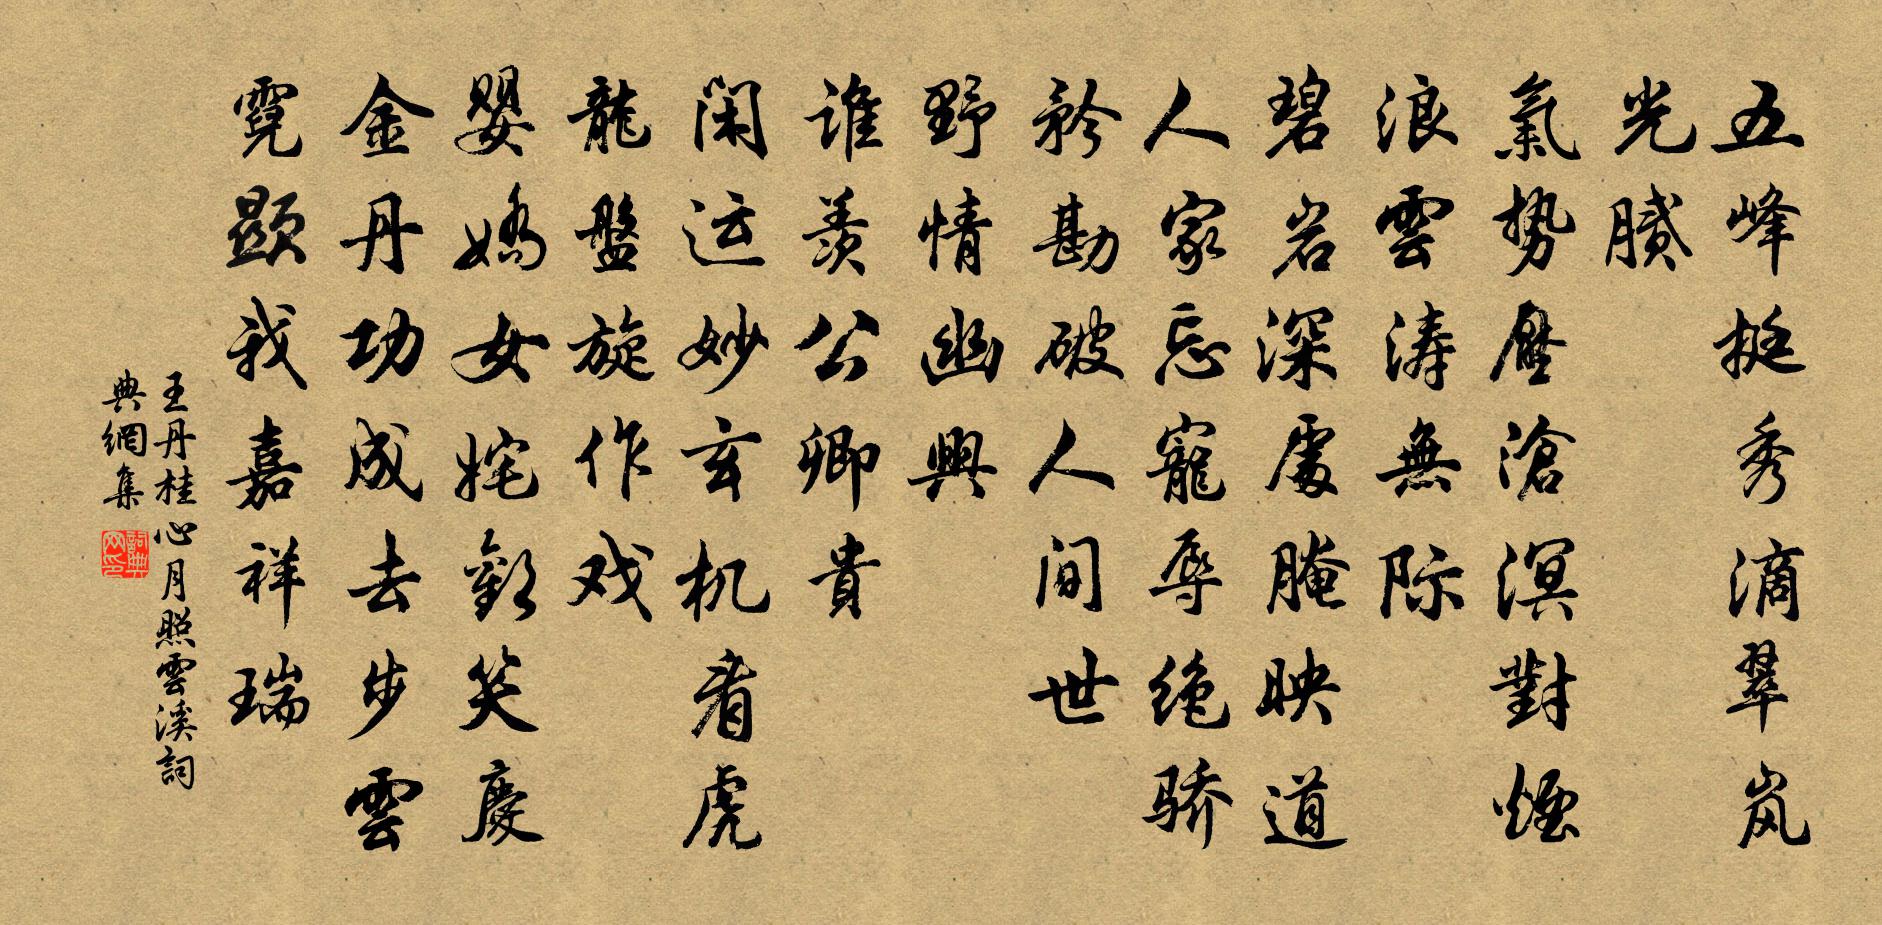 五峰挺秀滴翠岚
光膩
氣势壓滄溟對煙
浪雲涛無际
碧岩深處腌映道
人家忘寵辱绝骄
矜勘破人间世
野情幽興
谁羨公卿貴
闲运妙玄机看虎
龍盤旋作戏
嬰嬌女姹歡笑慶
金丹功成去步雲
霓顯我嘉祥瑞
王丹桂心月照雲溪詞
典網集
詞典
网印